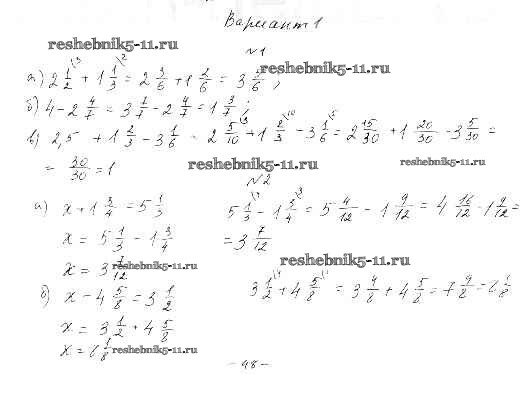 Вариант 1
reshebnik5-11.ru
№1
а) 2 1/2 + 1 1/3 = 2 3/6 + 1 2/6 = 3 5/6;
reshebnik5-11.ru
б) 4 - 2 4/7 = 3 7/7 - 2 4/7 = 1 3/7;
в) 2,5 + 1 2/3 - 3 1/6 = 2 5/10 + 1 2/3 - 3 1/6 = 2 15/30 + 1 20/30 - 3 5/30 =
= 30/30 = 1
reshebnik5-11.ru
reshebnik5-11.ru
№2
а) x + 1 3/4 = 5 1/3
x = 5 1/3 - 1 3/4
x = 3 7/12
reshebnik5-11.ru
5 1/3 - 1 3/4 = 5 4/12 - 1 9/12 = 4 16/12 - 1 9/12 =
= 3 7/12
reshebnik5-11.ru
б) x - 4 5/8 = 3 1/2
x = 3 1/2 + 4 5/8
x = 8 1/8
reshebnik5-11.ru
3 1/2 + 4 5/8 = 3 4/8 + 4 5/8 = 7 9/8 = 8 1/8
- 48 -